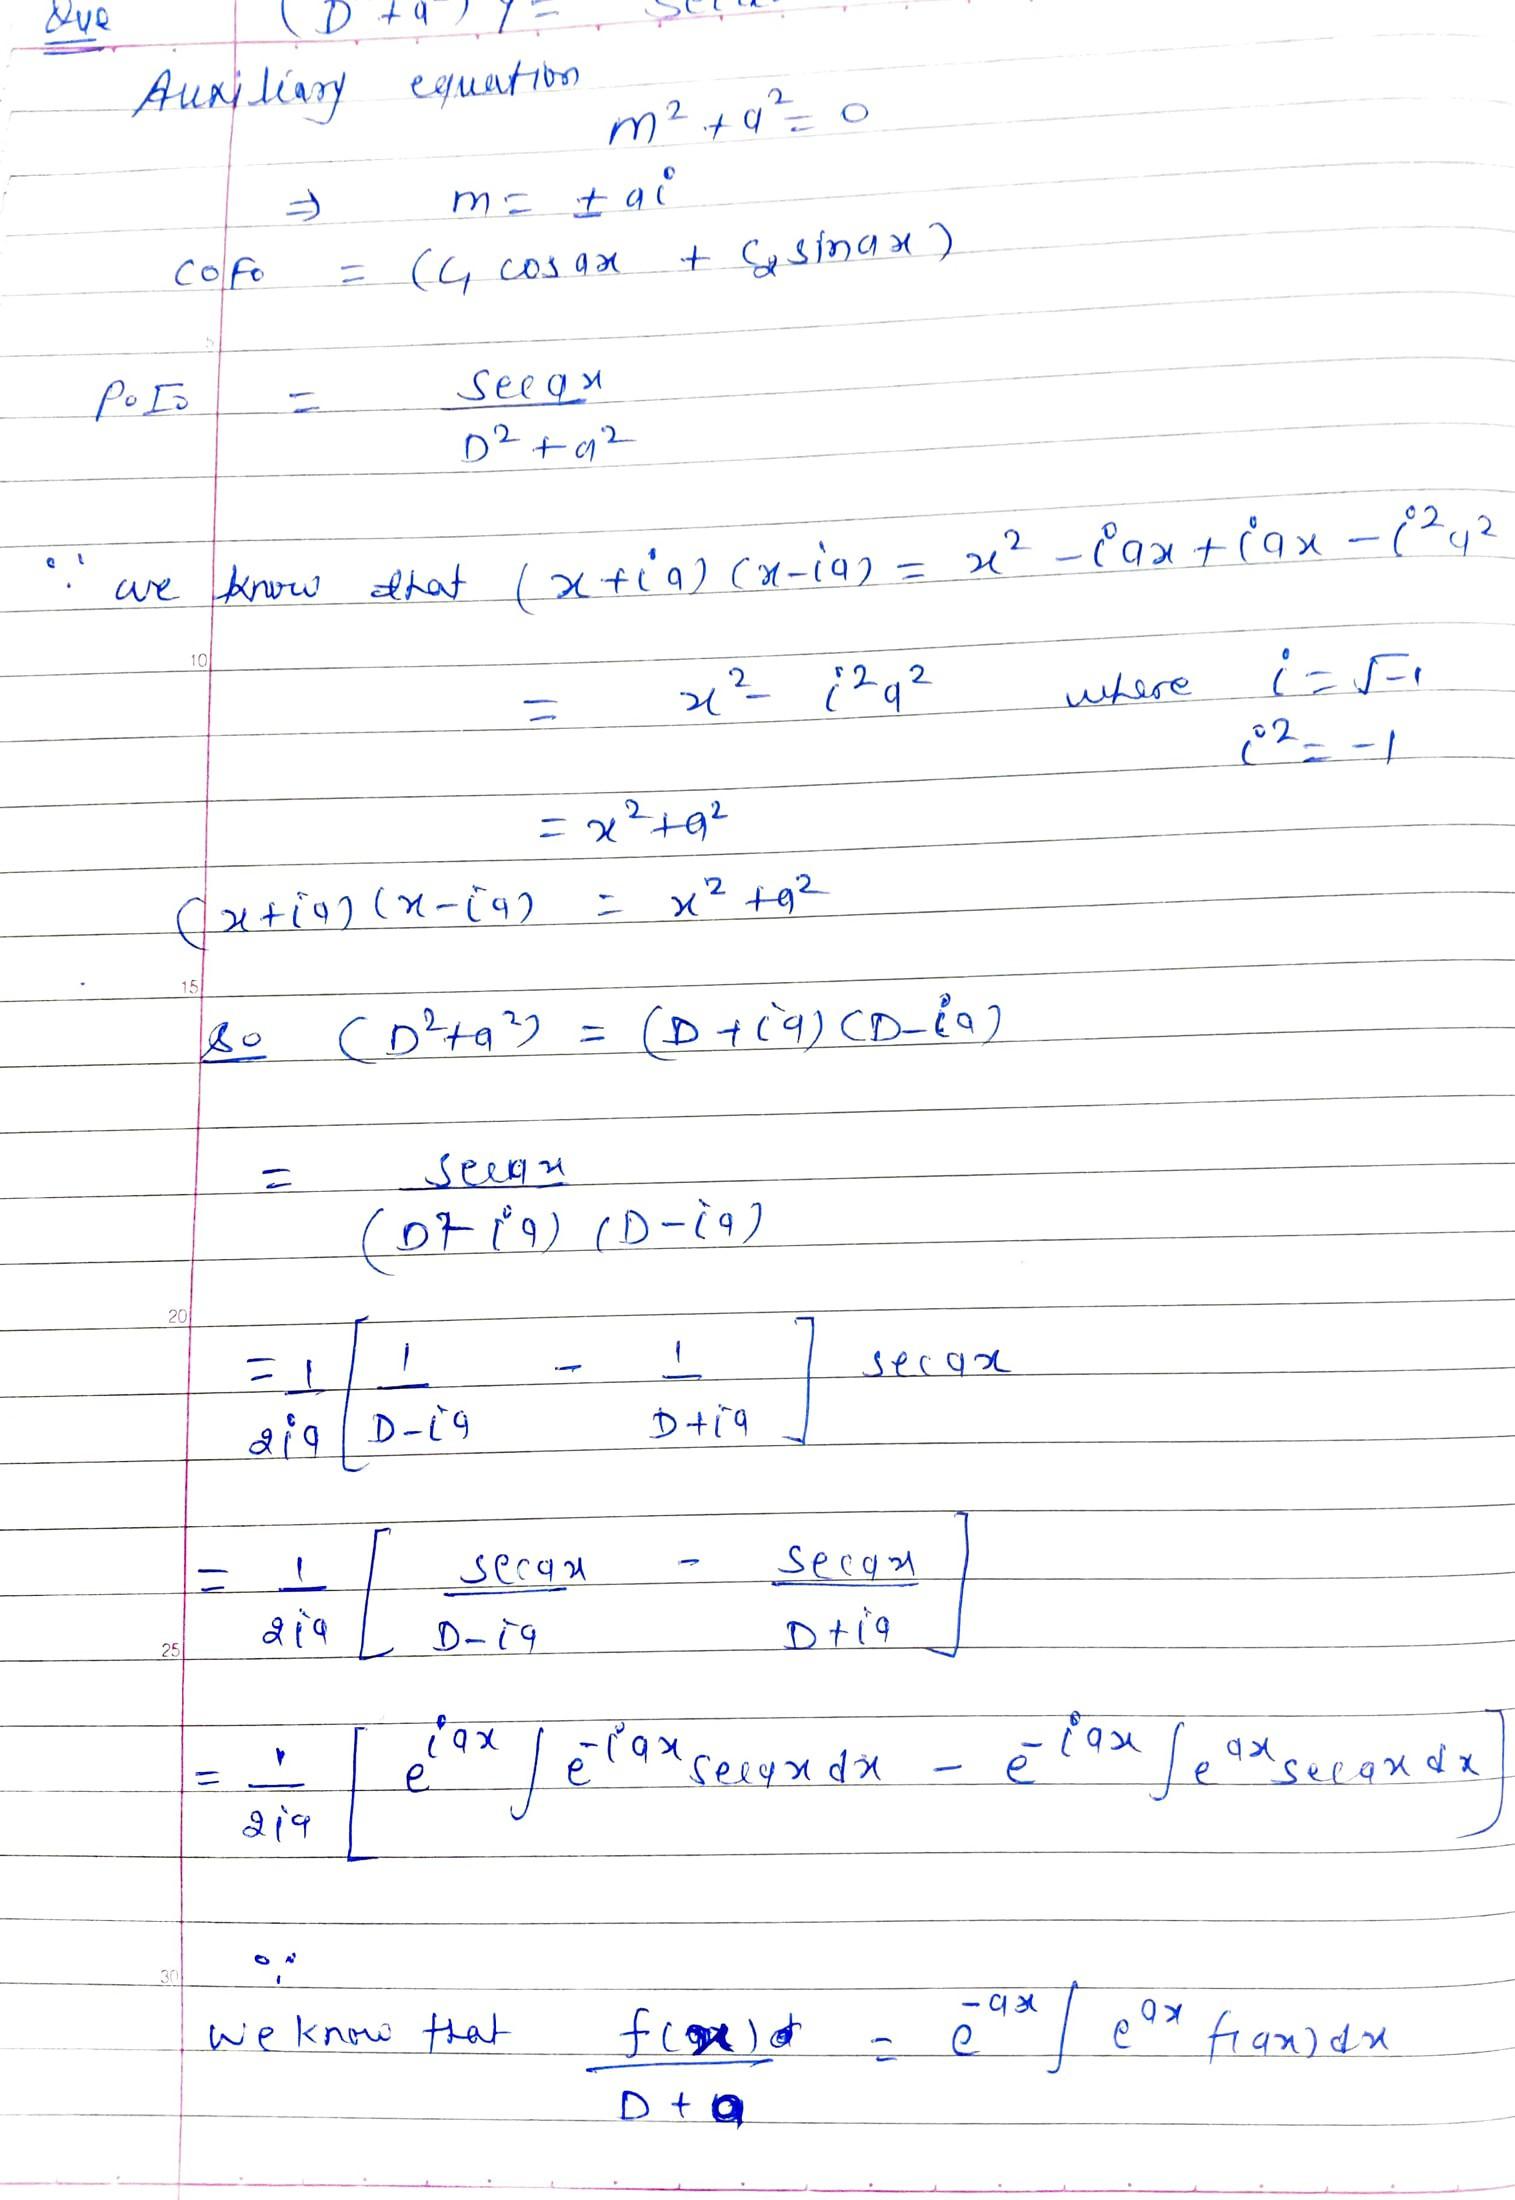 Que (D²+a²) y = sec
Auxiliary equation
m² + a² = 0
⇒ m = ± ai
C.F. = (C₁ cos ax + C₂ sin ax)
5
P.I. = sec ax / D² + a²
∵ we know that (x+ia) (x-ia) = x² - iax + iax - i²a²
10
= x² - i²a² where i = √-1
i² = -1
= x² + a²
(x+ia) (x-ia) = x² + a²
15
So (D²+a²) = (D+ia) (D-ia)
= sec ax / (D+ia) (D-ia)
20
= 1/2ia [ 1/D-ia - 1/D+ia ] sec ax
= 1/2ia [ sec ax/D-ia - sec ax/D+ia ]
25
= 1/2ia [ e^iax ∫ e^-iax sec ax dx - e^-iax ∫ e^ax sec ax dx ]
30
∵
we know that f(ax) / D + a = e^-ax ∫ e^ax f(ax) dx